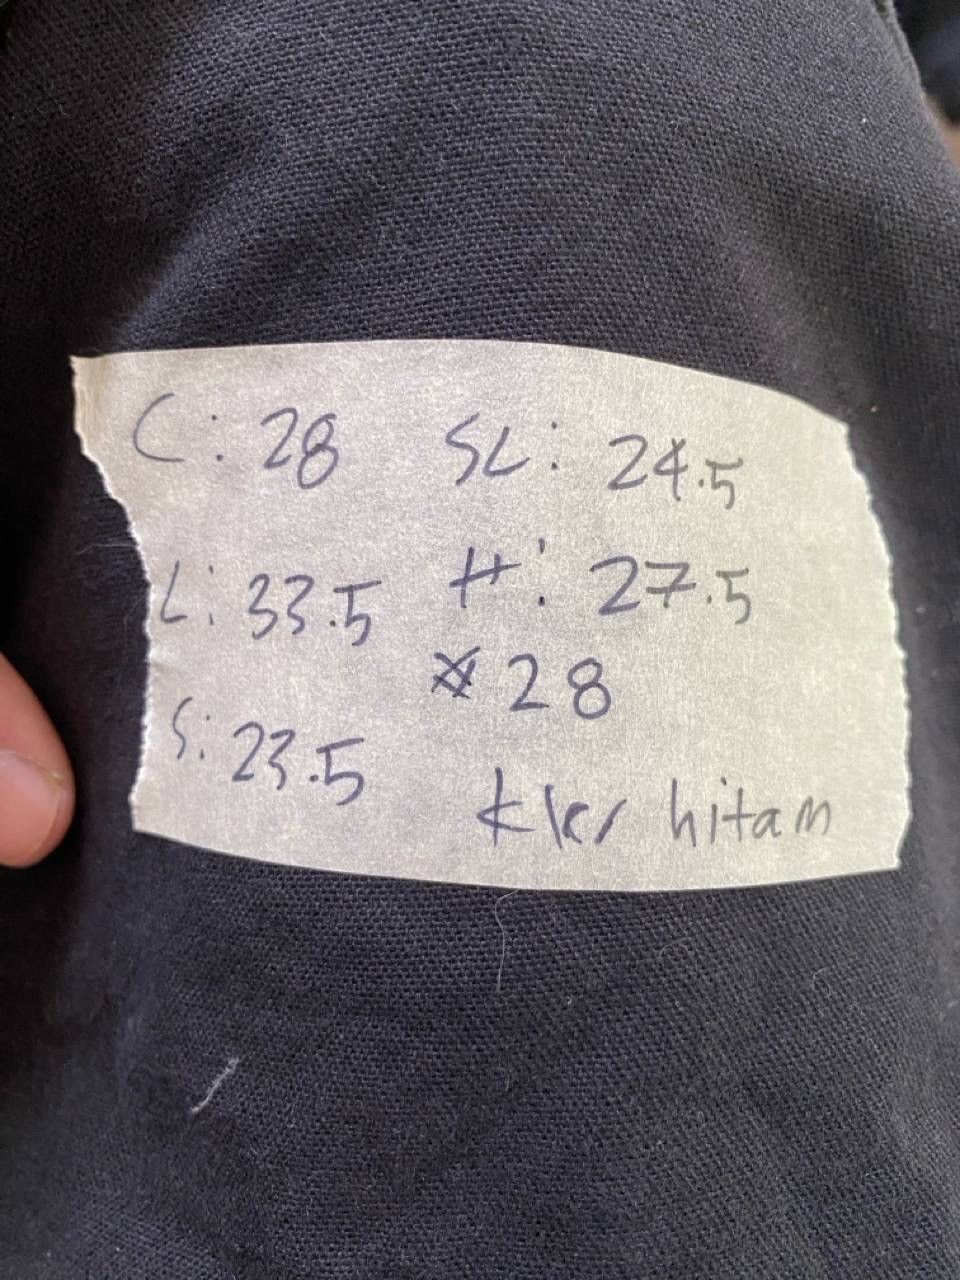 C: 28 SL: 24.5
L: 33.5 H: 27.5
28
S: 23.5
hitam